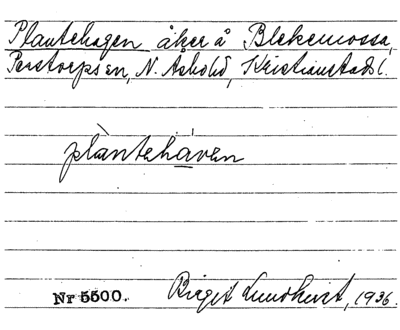 Plantehagen åker å Blekemossa,
Perstorps sn, N. Åsbohd, Kristianstads l.
plàntehàven
Nr 5500. Birgit Lundkvist, 1936.